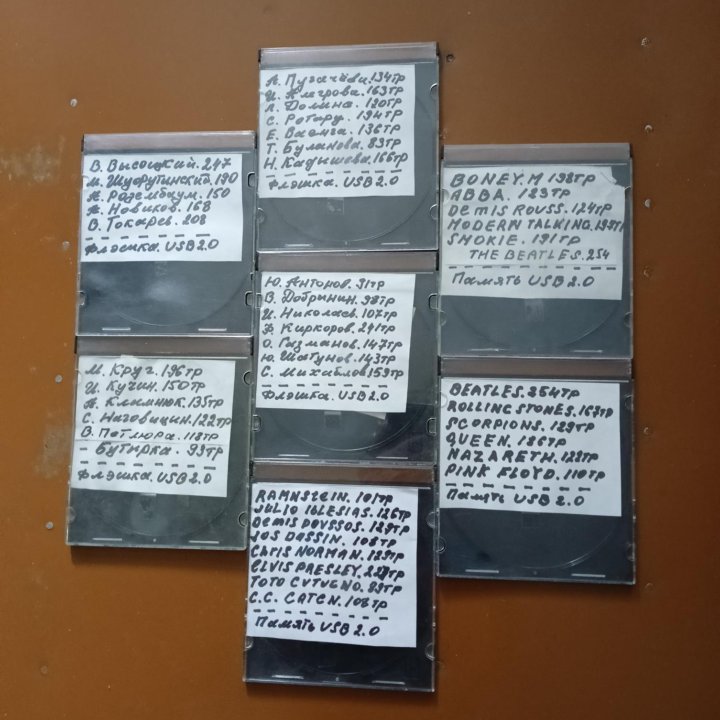 В. Высоцкий. 247
М. Шуфутинский. 190
А. Розембаум. 150
А. Новиков. 168
В. Токарев. 208
Флэшка. USB 2.0
М. Круг. 196тр
И. Кучин. 150тр
А. Климнюк. 135тр
С. Наговицин. 122тр
В. Петлюра. 118тр
Бутырка. 93тр
Флэшка. USB 2.0
А. Пугачёва. 134тр
И. Алегрова. 163тр
Л. Долина. 120тр
С. Ротару. 194тр
Е. Ваенга. 136тр
Т. Буланова. 83тр
Н. Кадышева. 166тр
Флэшка. USB 2.0
Ю. Антонов. 91тр
В. Добрынин. 98тр
И. Николаев. 107тр
Ф. Киркоров. 241тр
О. Газманов. 147тр
Ю. Шатунов. 143тр
С. Михайлов 159тр
Флэшка. USB 2.0
RAMNSTEIN. 101тр
JULIO IGLESIAS. 126тр
DEMIS ROUSSOS. 129тр
JOS DASSIN. 108тр
CHRIS NORMAN. 129тр
ELVIS PRESLEY. тр
TOTO CUTUGNO. 99тр
C.C. CATCH. 108тр
Память USB 2.0
BONEY. M 198тр
ABBA. 183тр
DEMIS ROUSS. 124тр
MODERN TALKING.
SMOKIE. 191тр
THE BEATLES. 254
Память USB 2.0
BEATLES. 254тр
ROLLING STONES. 167тр
SCORPIONS. 129тр
QUEEN. 186тр
NAZARETH. 128тр
PINK FLOYD. 110тр
Память USB 2.0